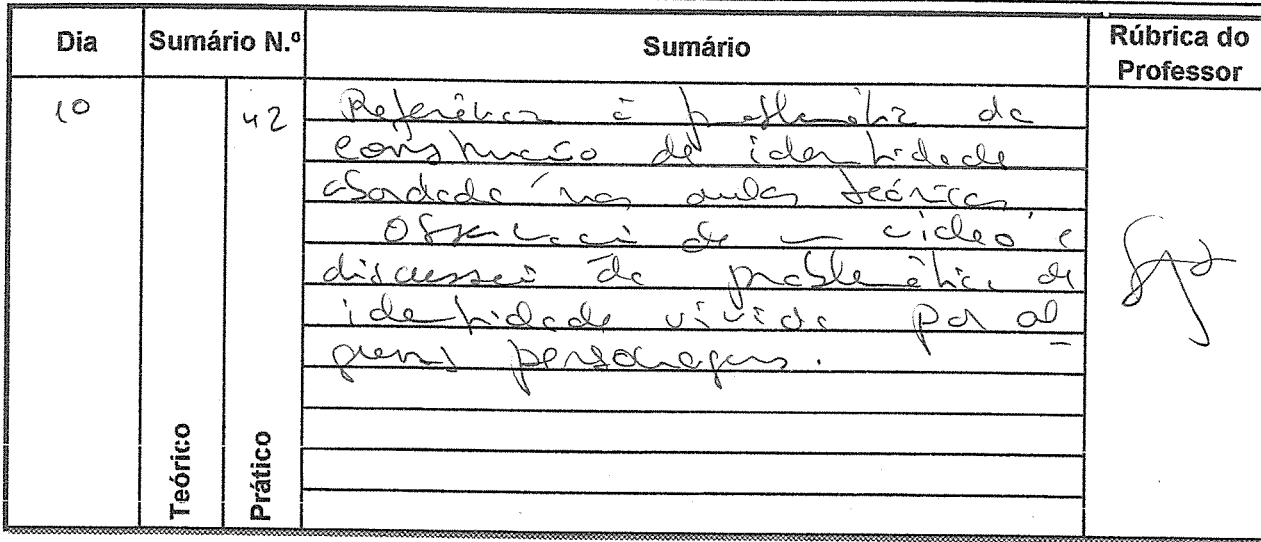 Dia Sumário N.º Sumário Rúbrica do Professor
10 42 Referência à problemática da
construção de identidade
abordada nas aulas teóricas
Observação de um vídeo e
discussão da problemática de
identidade vivida por al
guns personagens.
Teórico Prático